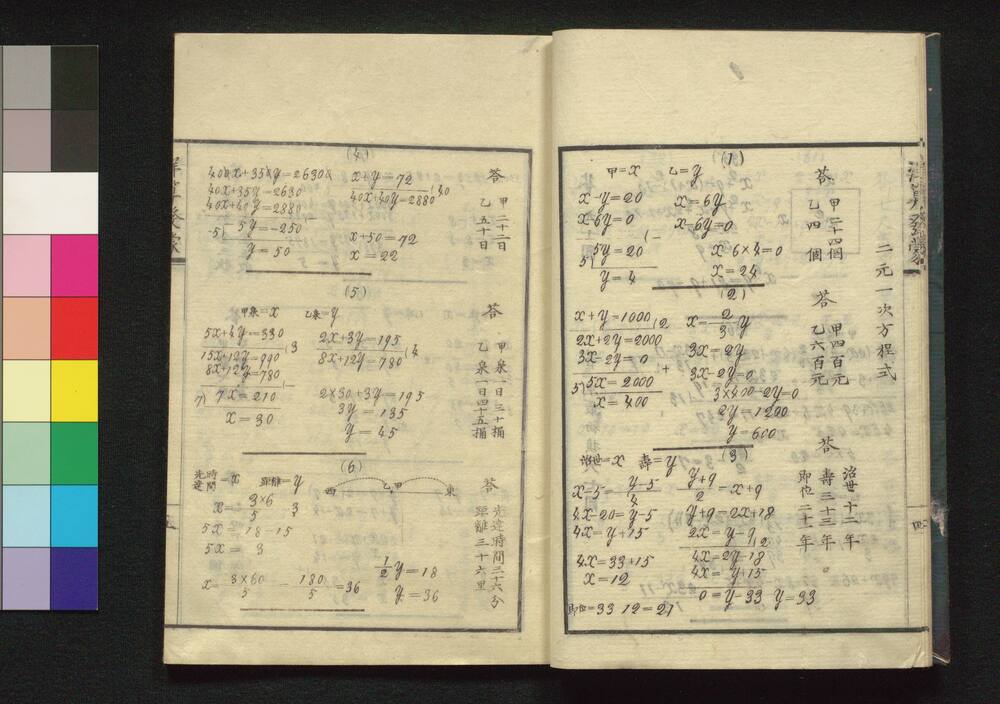 二元一次方程式
(1)
答 甲二十四個
乙四個
甲=x 乙=y
x-y=20
x-6y=0
5y=20
y=4
x=6y
x-6y=0
x-6×4=0
x=24
(2)
答 甲四百元
乙六百元
x+y=1000
2x+2y=2000
3x-2y=0
5x=2000
x=400
x=2/3y
3x=2y
3x-2y=0
3×400-2y=0
2y=1200
y=600
(3)
答 治世十二年
壽三十三年
即位二十一年
治世=x 壽=y
x-5=(y-5)/4
4x-20=y-5
4x=y+15
4x=33+15
x=12
即位=33 12=21
(y+9)/2=x+9
y+9=2x+18
2x=y-9
4x=2y-18
4x=y+15
0=y-33 y=33
四
(4)
答 甲二十二日
乙五十日
40x+35y=2630
40x+40y=2880
-5) 5y=-250
y=50
x+y=72
40x+40y=2880
x+50=72
x=22
(5)
答 甲泉一日三十捅
乙泉一日四十五捅
甲泉=x 乙泉=y
5x+4y=330
15x+12y=990
8x+12y=780
7) 7x=210
x=30
2x+3y=195
8x+12y=780
2×30+3y=195
3y=135
y=45
(6)
答 先達時間三十六分
距離三十六里
先達時間=x 距離=y
西 乙甲 東
x=(3×6)/5 3
5x=18-15
5x=3
x=(3×60)/5=180/5=36
1/2y=18
y=36